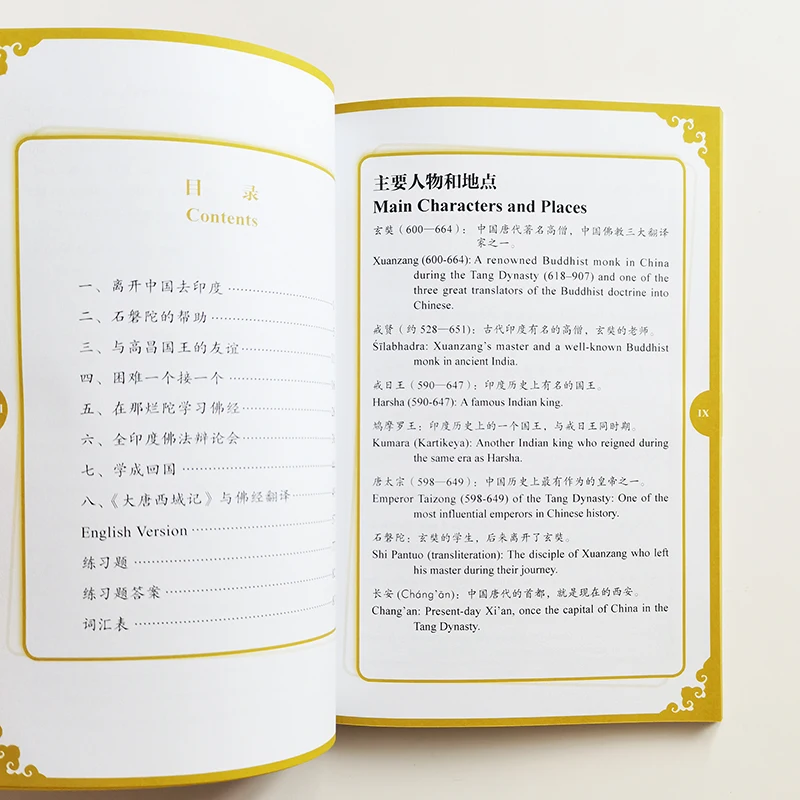 目 录
Contents
一、离开中国去印度
二、石磐陀的帮助
三、与高昌国王的友谊
四、困难一个接一个
五、在那烂陀学习佛经
六、全印度佛法辩论会
七、学成回国
八、《大唐西域记》与佛经翻译
English Version
练习题
练习题答案
词汇表
主要人物和地点
Main Characters and Places
玄奘（600—664）：中国唐代著名高僧，中国佛教三大翻译
家之一。
Xuanzang (600-664): A renowned Buddhist monk in China
during the Tang Dynasty (618–907) and one of the
three great translators of the Buddhist doctrine into
Chinese.
戒贤（约 528—651）：古代印度有名的高僧，玄奘的老师。
Śīlabhadra: Xuanzang's master and a well-known Buddhist
monk in ancient India.
戒日王（590—647）：印度历史上有名的国王。
Harsha (590-647): A famous Indian king.
鸠摩罗王：印度历史上的一个国王，与戒日王同时期。
Kumara (Kartikeya): Another Indian king who reigned during
the same era as Harsha.
唐太宗（598—649）：中国历史上最有作为的皇帝之一。
Emperor Taizong (598-649) of the Tang Dynasty: One of the
most influential emperors in Chinese history.
石磐陀：玄奘的学生，后来离开了玄奘。
Shi Pantuo (transliteration): The disciple of Xuanzang who left
his master during their journey.
长安(Cháng'ān)：中国唐代的首都，就是现在的西安。
Chang'an: Present-day Xi'an, once the capital of China in the
Tang Dynasty.
IX